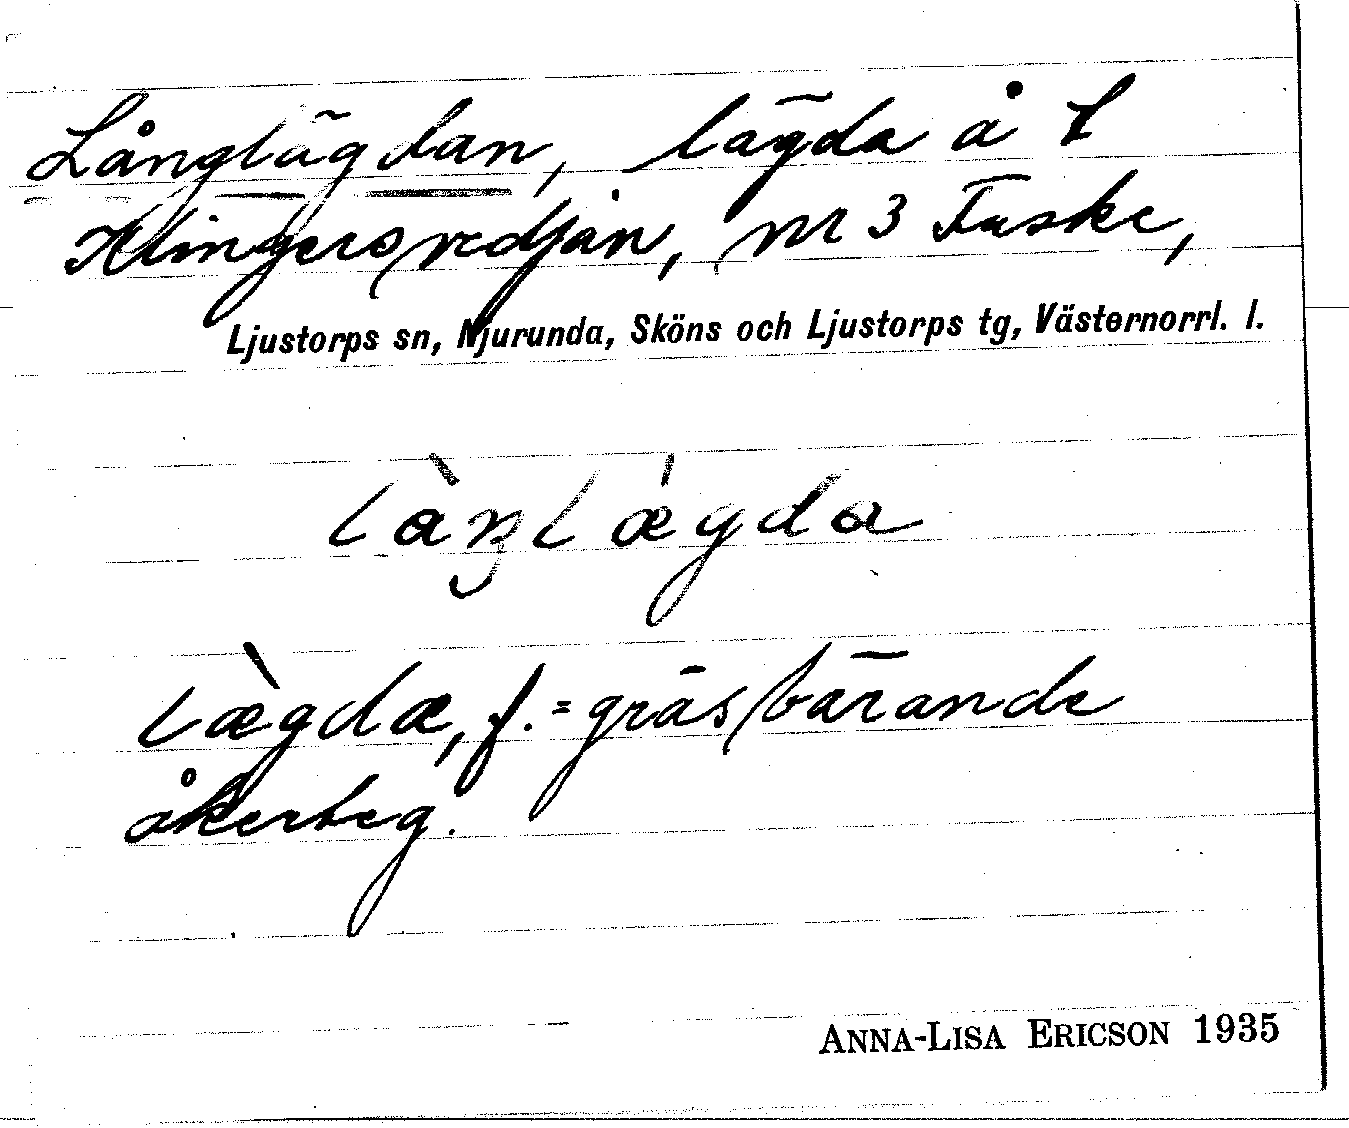 Långlägdan, lägda å t
Klingersvedjan, nr 3 Fuske,
Ljustorps sn, Njurunda, Sköns och Ljustorps tg, Västernorrl. l.
là̀ŋlǽgda
lægdæ, f. = gräsbärande
åkerteg.
ANNA-LISA ERICSON 1935